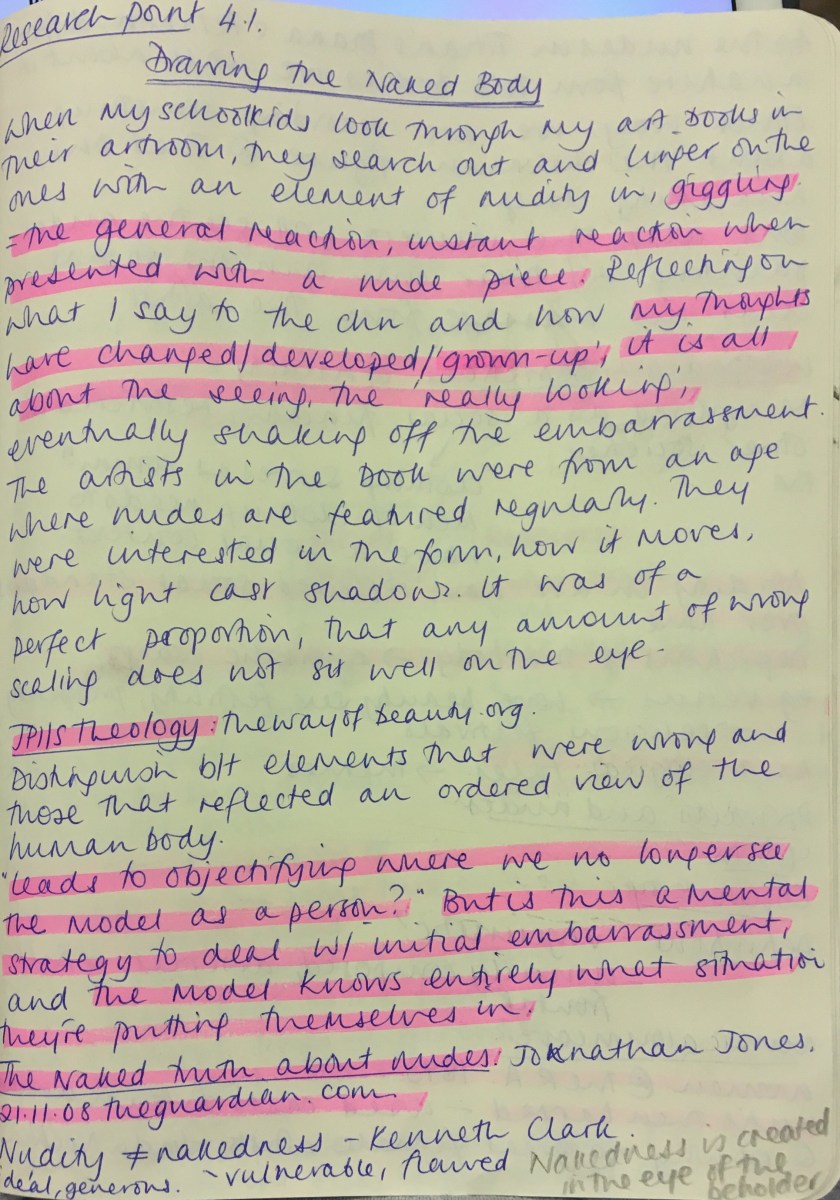 Research point 4.1.
Drawing the Naked Body
When my schoolkids look through my art books in
their artroom, they search out and linger on the
ones with an element of nudity in, giggling.
= the general reaction, instant reaction when
presented with a nude piece. Reflecting on
what I say to the chn and how my thoughts
have changed/developed/'grown-up', it is all
about the seeing, the 'really looking',
eventually shaking off the embarrassment.
The artists in the book were from an age
where nudes are featured regularly. They
were interested in the form, how it moves,
how light cast shadows. It was of a
perfect proportion, that any amount of wrong
scaling does not sit well on the eye.
JPIIs theology: thewayofbeauty.org.
Distinguish b/t elements that were wrong and
those that reflected an ordered view of the
human body.
"leads to objectifying where we no longer see
the model as a person?" But is this a mental
strategy to deal w/ initial embarrassment,
and the model knows entirely what situation
they're putting themselves in.
The Naked truth about nudes: Jonathan Jones,
21.11.08 theguardian.com
Nudity ≠ nakedness - Kenneth Clark.
ideal, generous. vulnerable, flawed
Nakedness is created
in the eye of the
beholder